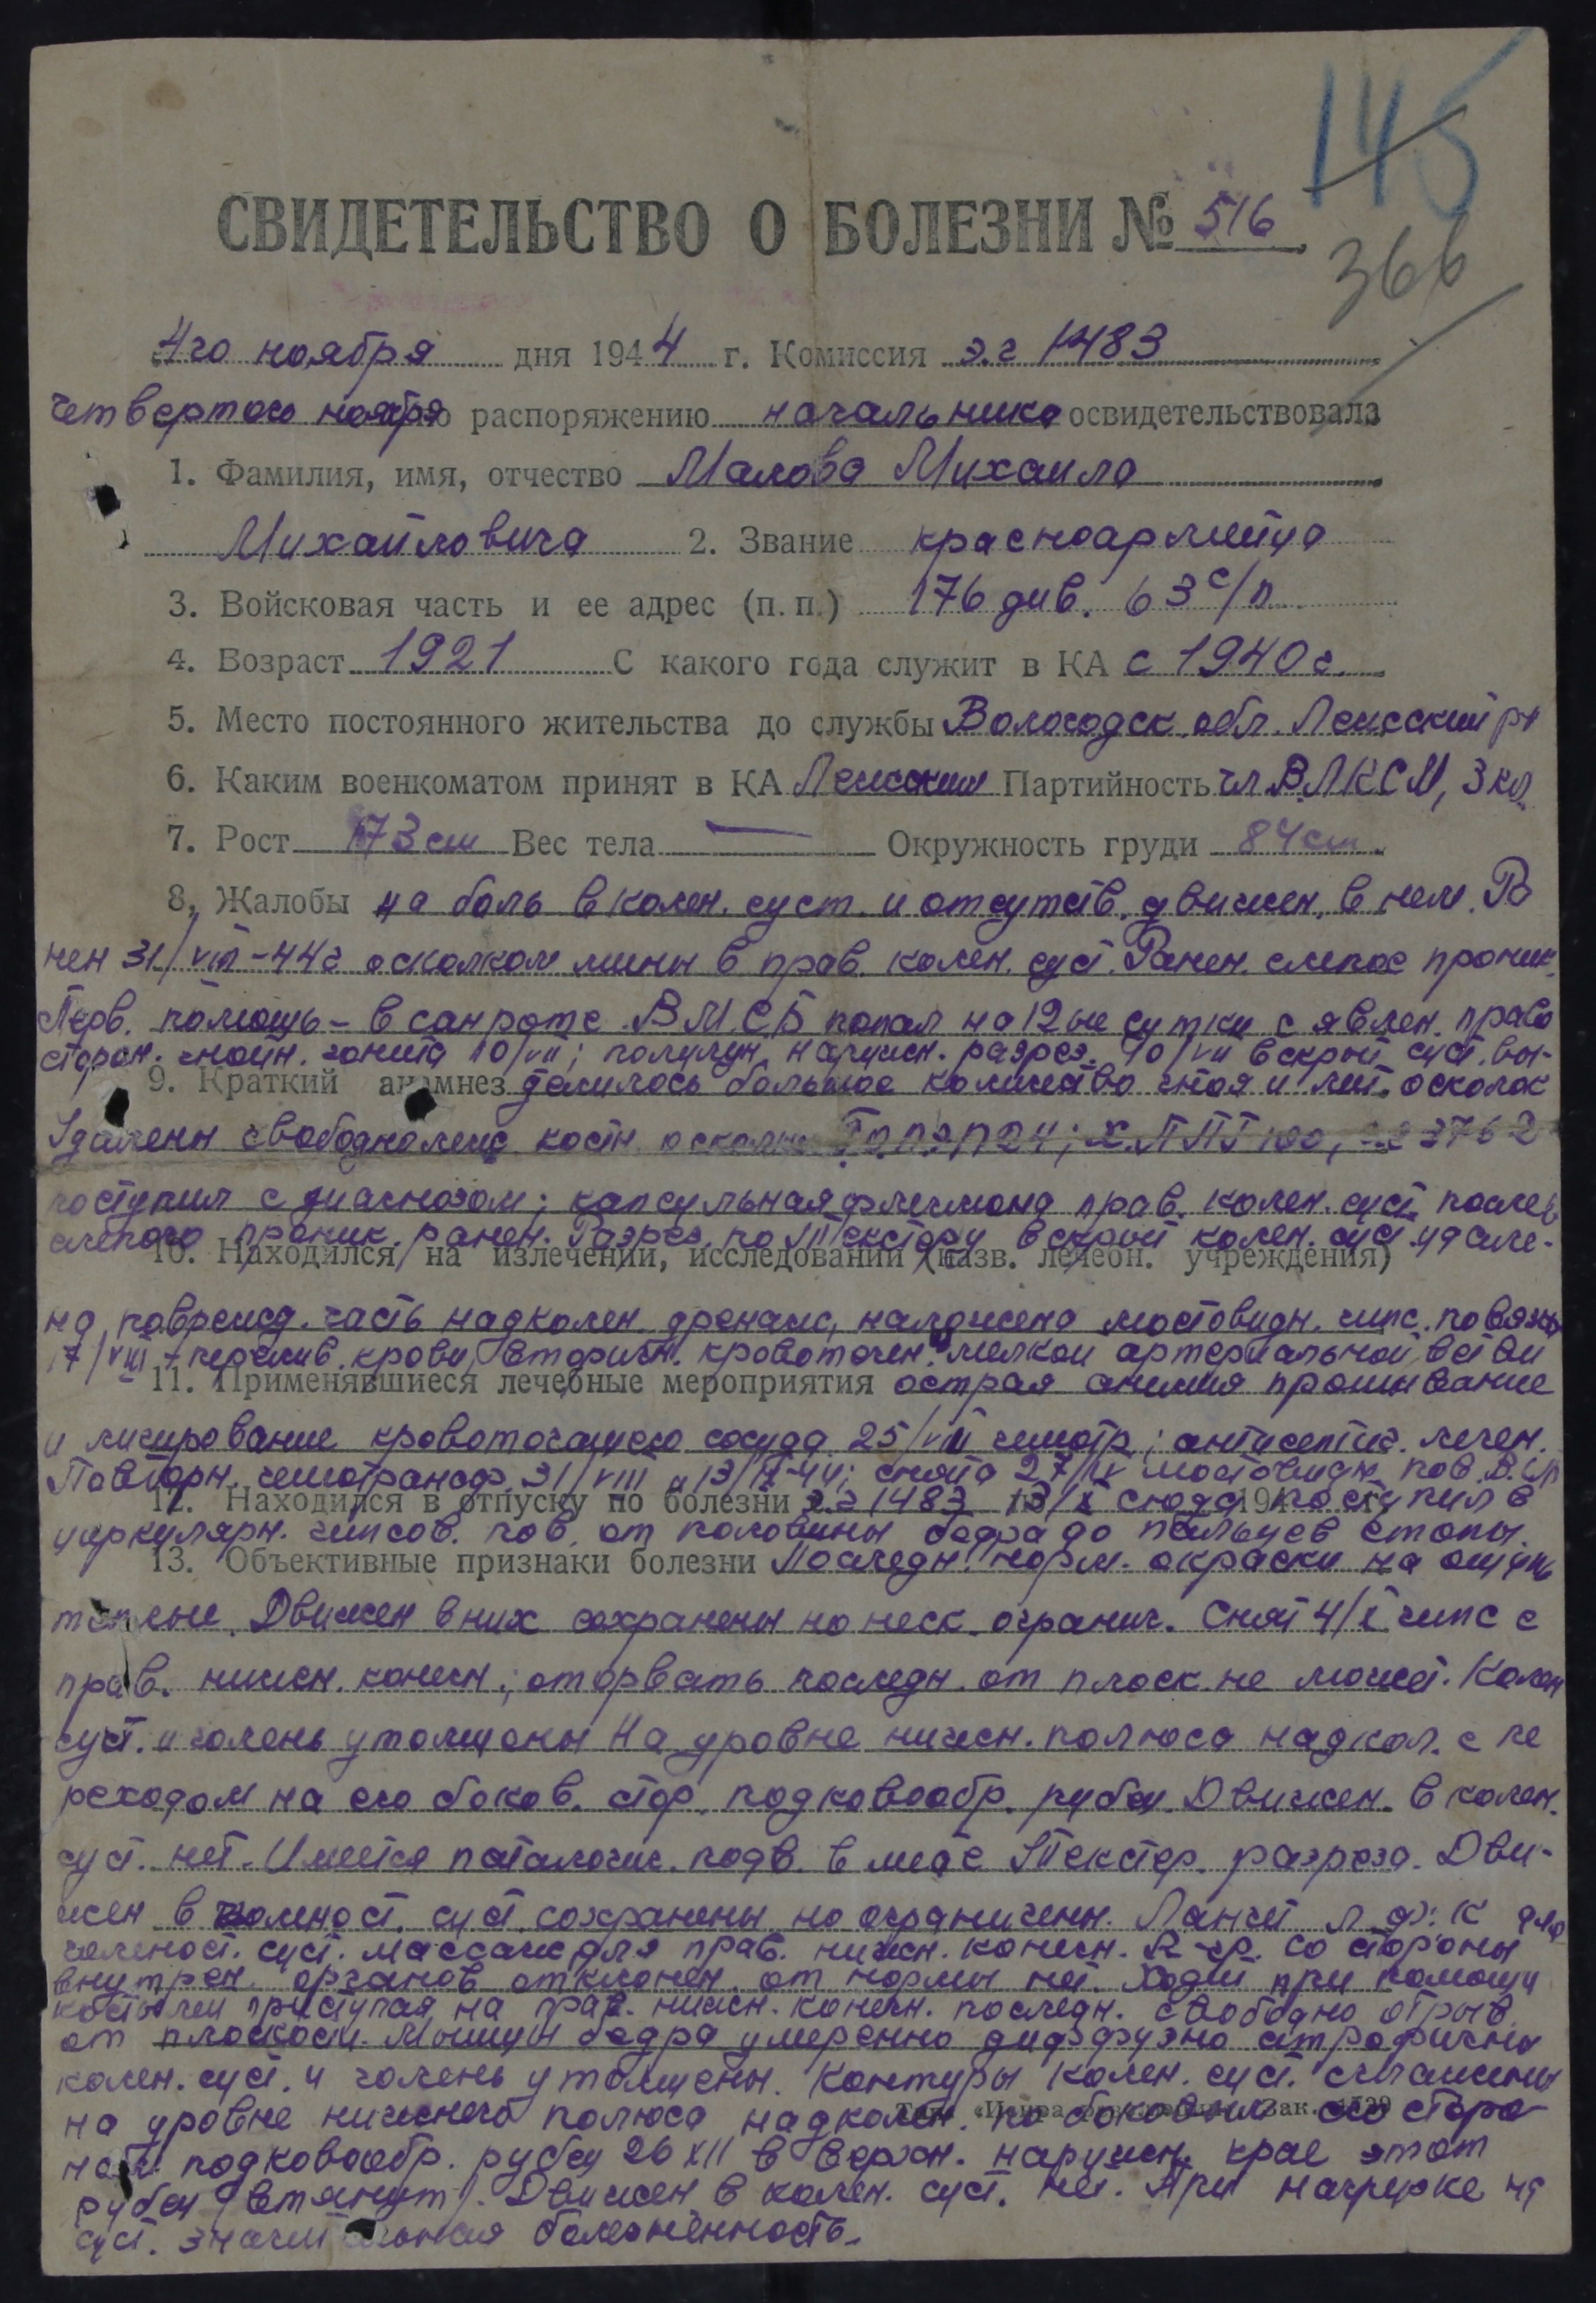 145
366
СВИДЕТЕЛЬСТВО О БОЛЕЗНИ № 516
4го ноября дня 1944 г. Комиссия э.г 1483
четвертого ноября по распоряжению начальника освидетельствовала
1. Фамилия, имя, отчество Малова Михаила
Михайловича 2. Звание красноармейца
3. Войсковая часть и ее адрес (п. п.) 176 див. 63 с/п
4. Возраст 1921 С какого года служит в КА с 1940 г.
5. Место постоянного жительства до службы Вологодск. обл. Ленский рн
6. Каким военкоматом принят в КА Ленским Партийность чл ВЛКСМ, 3 кл.
7. Рост 173 см Вес тела — Окружность груди 84 см
8. Жалобы на боль в колен. суст. и отсутств. движен. в нем. Ра
нен 31/VII-44г осколком мины в прав. колен. суст. Ранен. слепое проник.
Перв. помощь - в санроте. В МСБ попал на 12ые сутки с явлен. право
сторон. гнойн. гонита 10/VII; полулун. наружн. разрез. 10/VII вскрыт суст. вы-
9. Краткий анамнез делилось большое количество гноя и мет. осколок
Удалены свободнолежщ. костн. осколки ХППГ 100, эг 3762
поступил с диагнозом; капсульная флегмона прав. колен. суст. после
слепого проник. ранен. Разрез по Текстору вскрыт колен. суст. удале-
10. Находился на излечении, исследовании (назв. лечебн. учреждения)
на поврежд. часть надколен. дренаж, наложена мостовидн. гипс. повязка
17/VIII - перелив. крови, вторичн. кровотечен. мелкой артериальной ветви
11. Применявшиеся лечебные мероприятия острая анемия промывание
и лигирование кровоточащего сосуда 25/VIII гемотр; антисептич. лечен.
Повторн. гемотрансф. 31/VIII и 13/IX-44; снята 27/IX мостовидн. пов. В эг
12. Находился в отпуску по болезни э.г 1483 13/X сюда 194 поступил в
циркулярн. гипсов. пов. от половины бедра до пальцев стопы.
13. Объективные признаки болезни Последн. норм. окраски на ощупь
теплые. Движен в них сохранены но неск. огранич. Снят 4/X гипс с
прав. нижн. конечн.; оторвать последн. от плоск. не может. Колен
суст. и голень утолщены На уровне нижн. полюса надкол. с пе
реходом на его боков. стор. подковообр. рубец. Движен. в колен.
суст. нет. Имеется паталогич. подв. в месте Текстор. разреза. Дви-
жен в голеност. суст. сохранены но ограничены. Лангет ЛФК для
голеност. суст. массаж для прав. нижн. конечн. Со стороны
внутрен. органов отклонен. от нормы нет. Ходит при помощи
костылей приступая на прав. нижн. конечн. последн. свободно отрыв.
от плоскости. Мышцы бедра умеренно диффузно атрофичны
колен. суст. и голень утолщены. Контуры колен. суст. сглажены
на уровне нижнего полюса надколен. по боковым его сторо
Тип. «Искра Зак. 1529
нам подковообр. рубец 26 XII в верхн. наружн. крае этот
рубец (втянут). Движен в колен. суст. нет. При нагрузке на
суст. значительная болезненность.